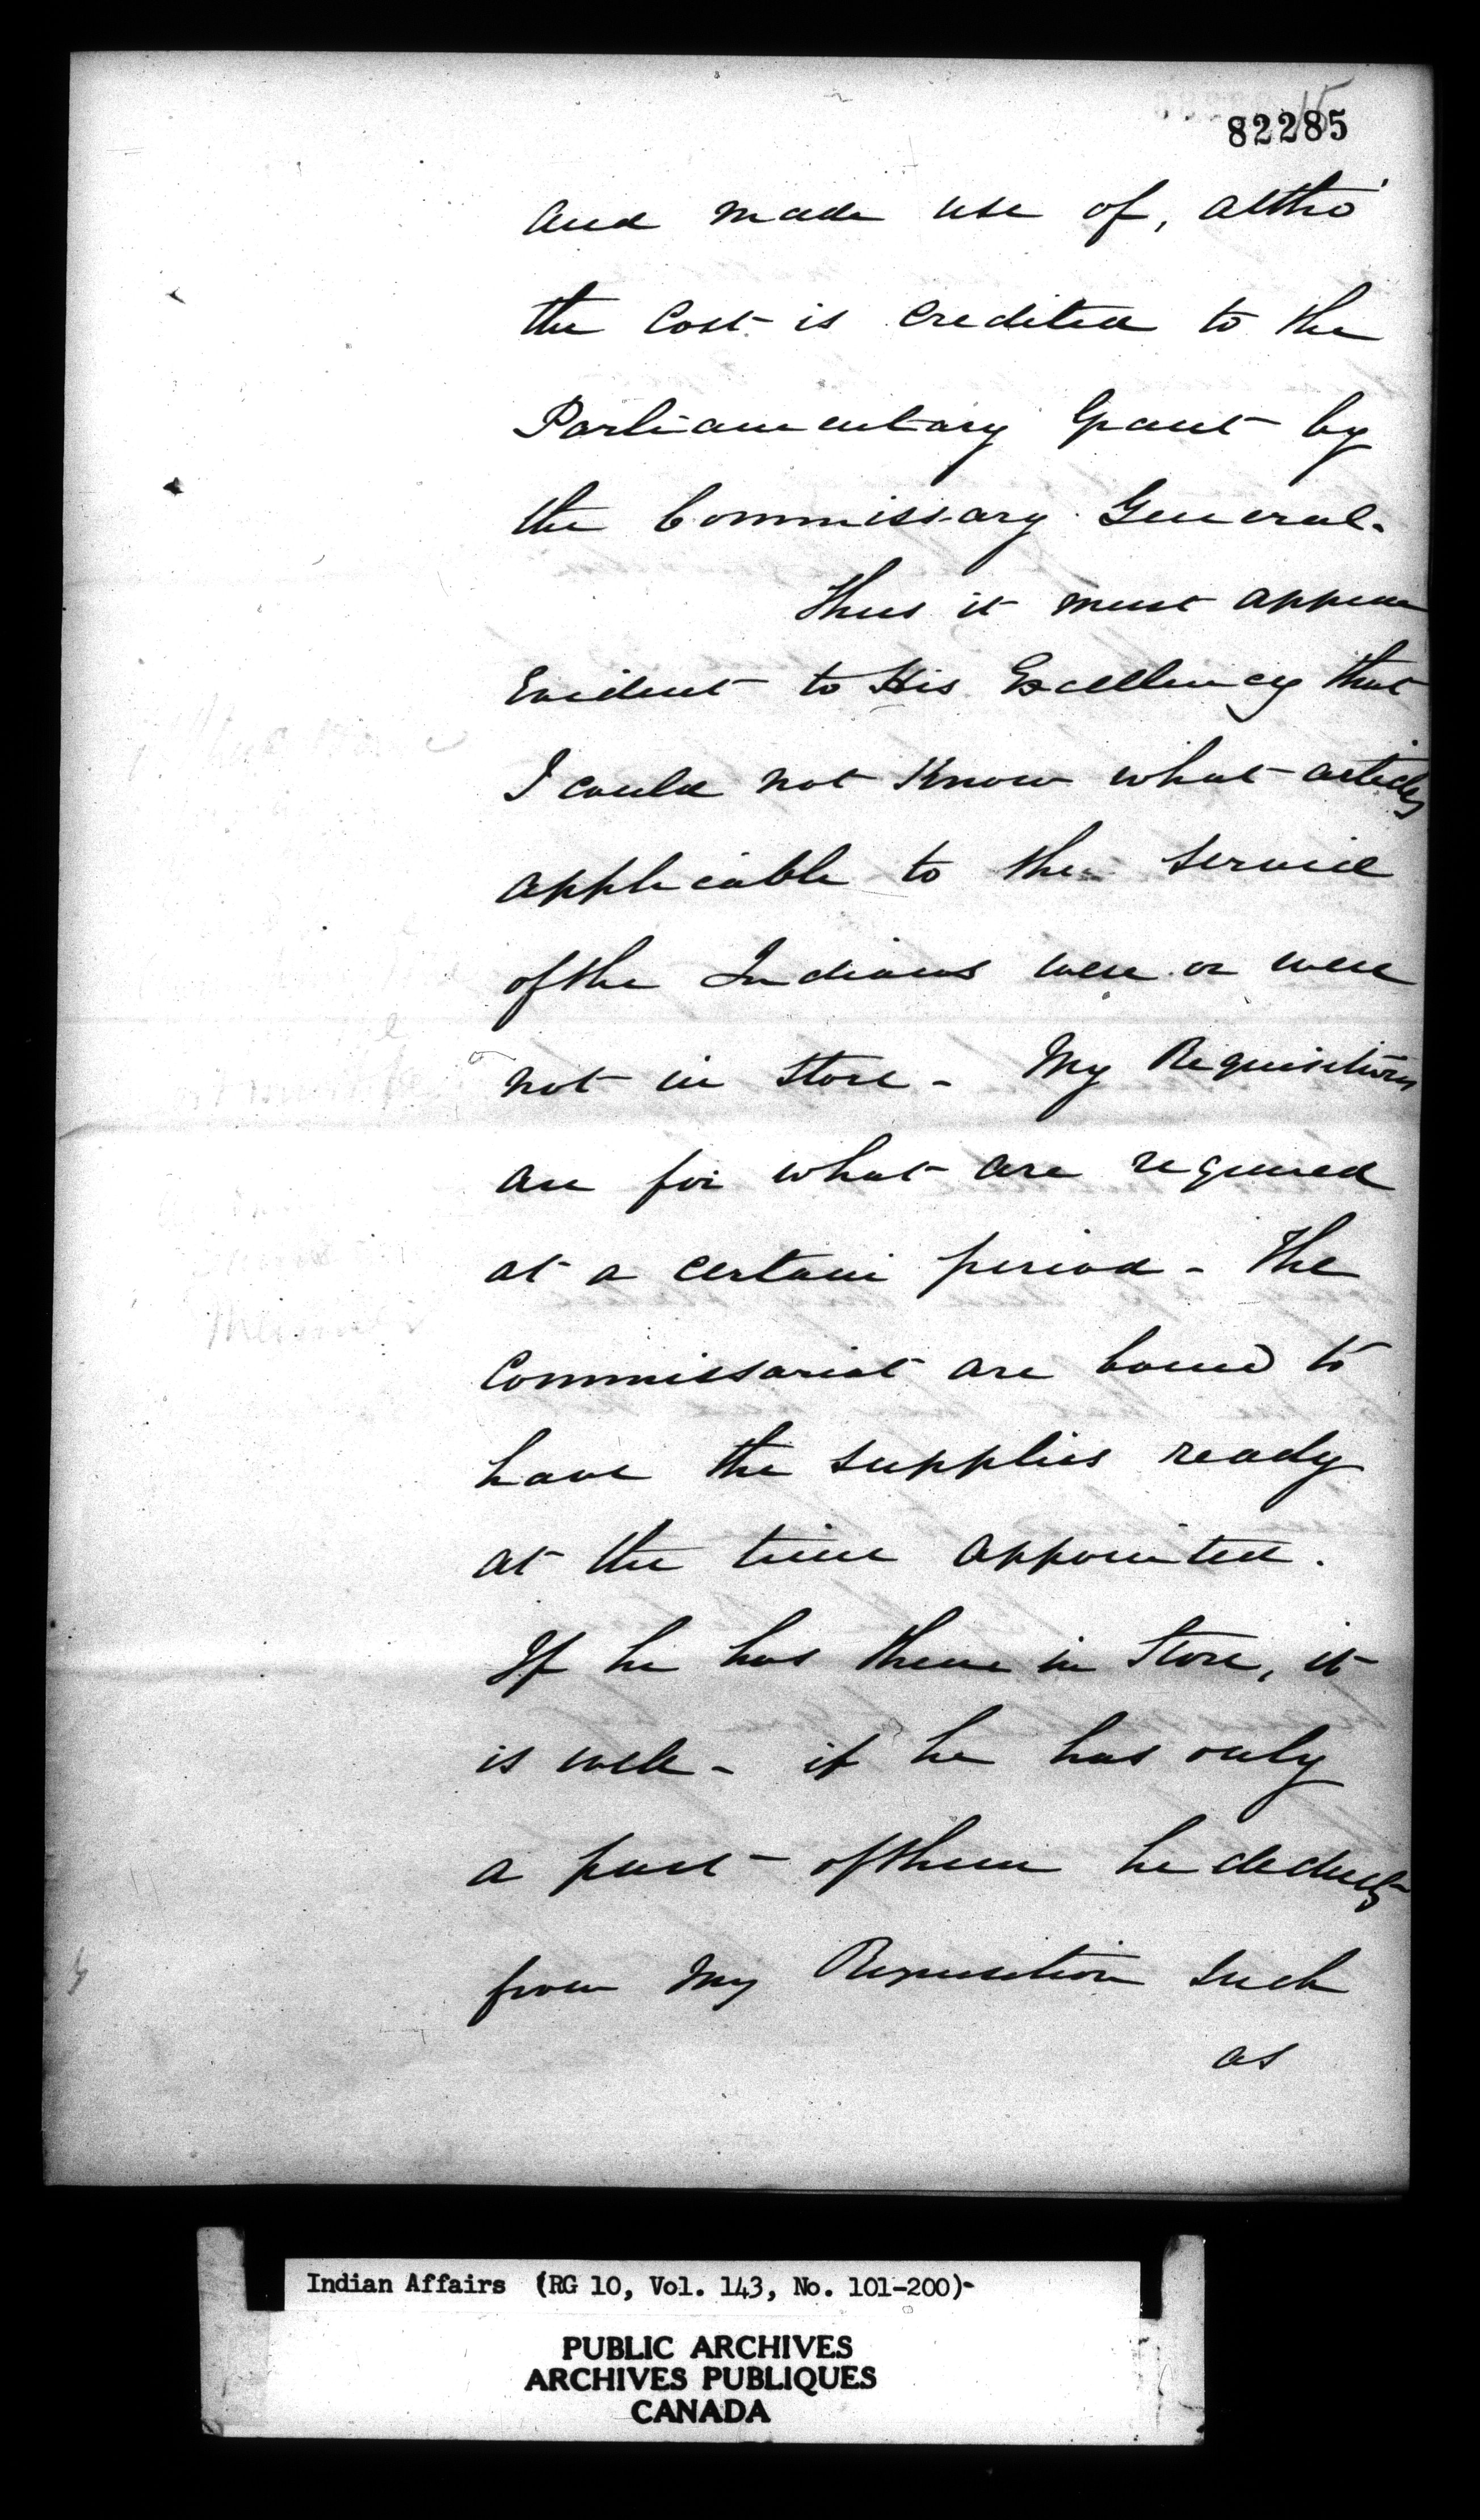 15
82285
and made use of, altho'
the Cost is Credited to the
Parliamentary Grant by
the Commissary General.
Thus it must appear
Evident to His Excellency that
I could not Know what articles
applicable to the service
of the Indians were or were
not in Store - My Requisitions
are for what are required
at a certain period - The
Commissariat are bound to
have the supplies ready
at the time appointed.
If he has them in Store, it
is well - if he has only
a part of them he deducts
from my Requisition such
as
Indian Affairs (RG 10, Vol. 143, No. 101-200)-
PUBLIC ARCHIVES
ARCHIVES PUBLIQUES
CANADA